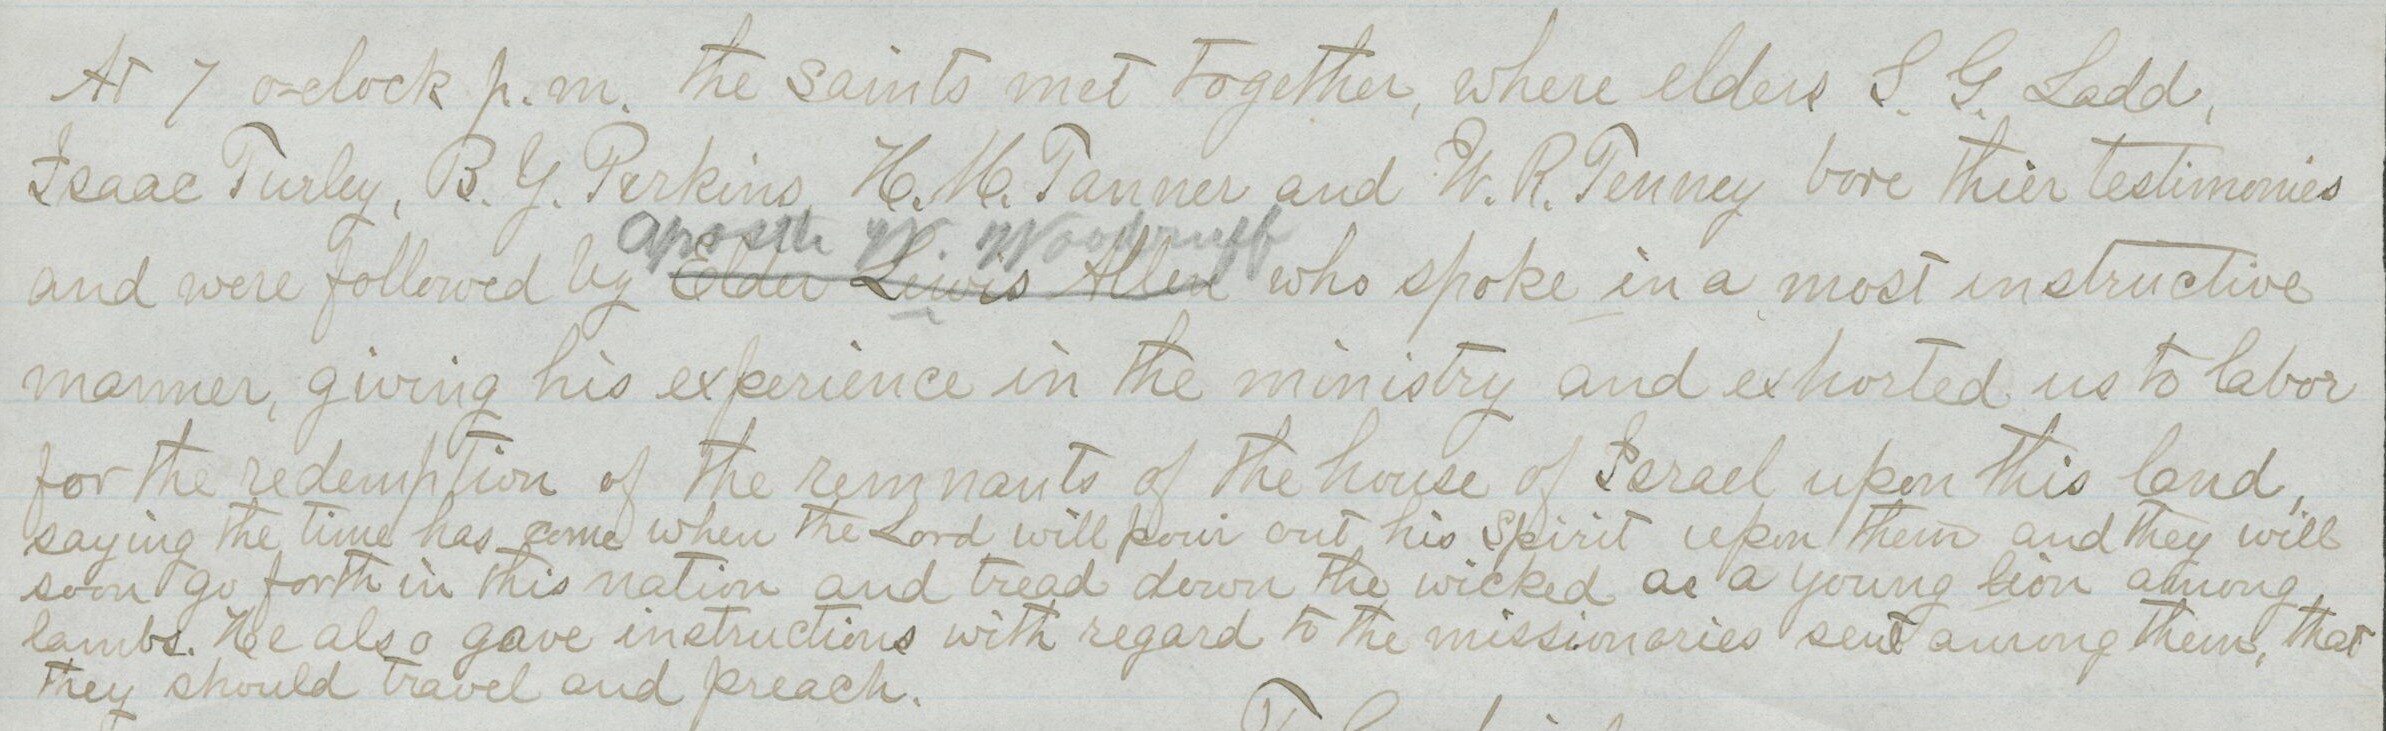 At 7 o-clock p.m. the saints met together, where elders S. G. Ladd,
Isaac Turley, B. Y. Perkins, H. M. Tanner and W. R. Tenney bore thier testimonies
Apostle W. Woodruff
and were followed by Elder Lewis Allen who spoke in a most instructive
manner, giving his experience in the ministry and exhorted us to labor
for the redemption of the remnants of the house of Israel upon this land,
saying the time has come when the Lord will pour out his Spirit upon them and they will
soon go forth in this nation and tread down the wicked as a young lion among
lambs. He also gave instructions with regard to the missionaries sent among them, that
they should travel and preach.